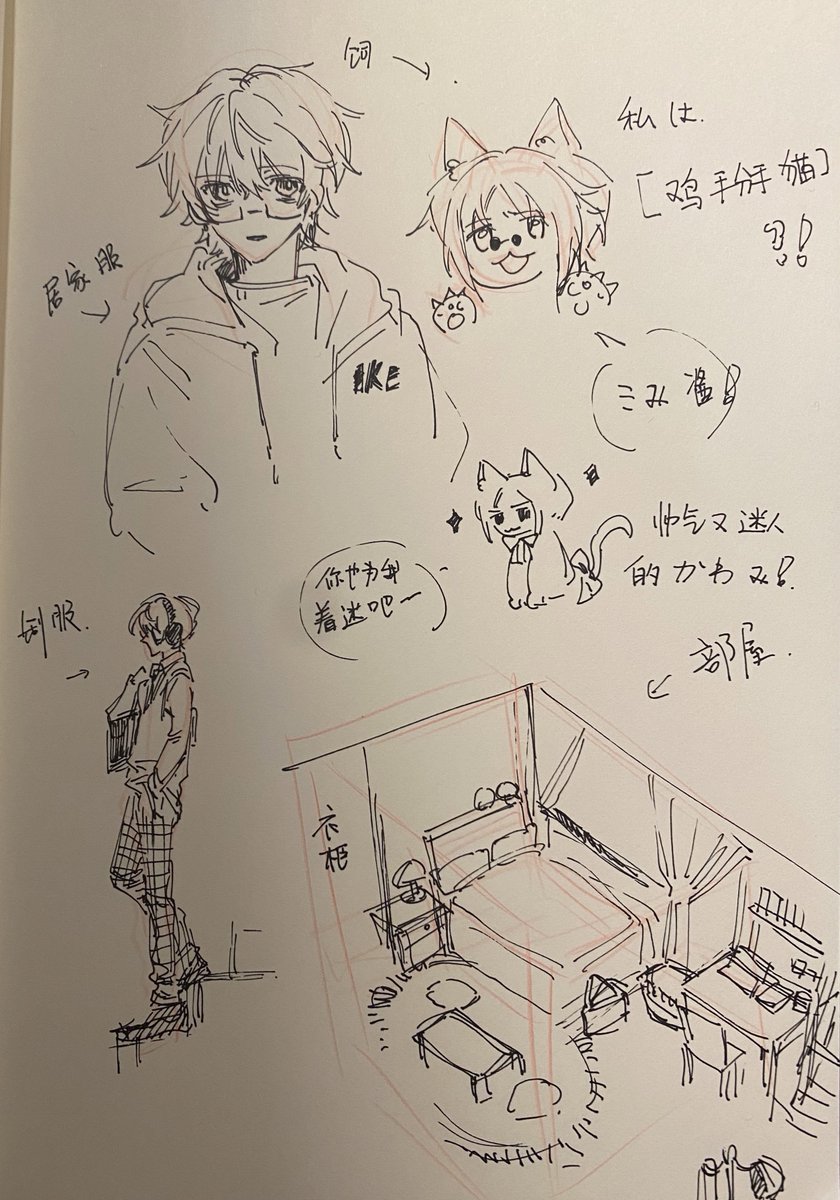 饲
私は.
[鸡手掰手猫]
居家服
IKE
帅气又迷人
的かわみ!
你也为我
着迷吧~
制服.
部屋.
衣柜